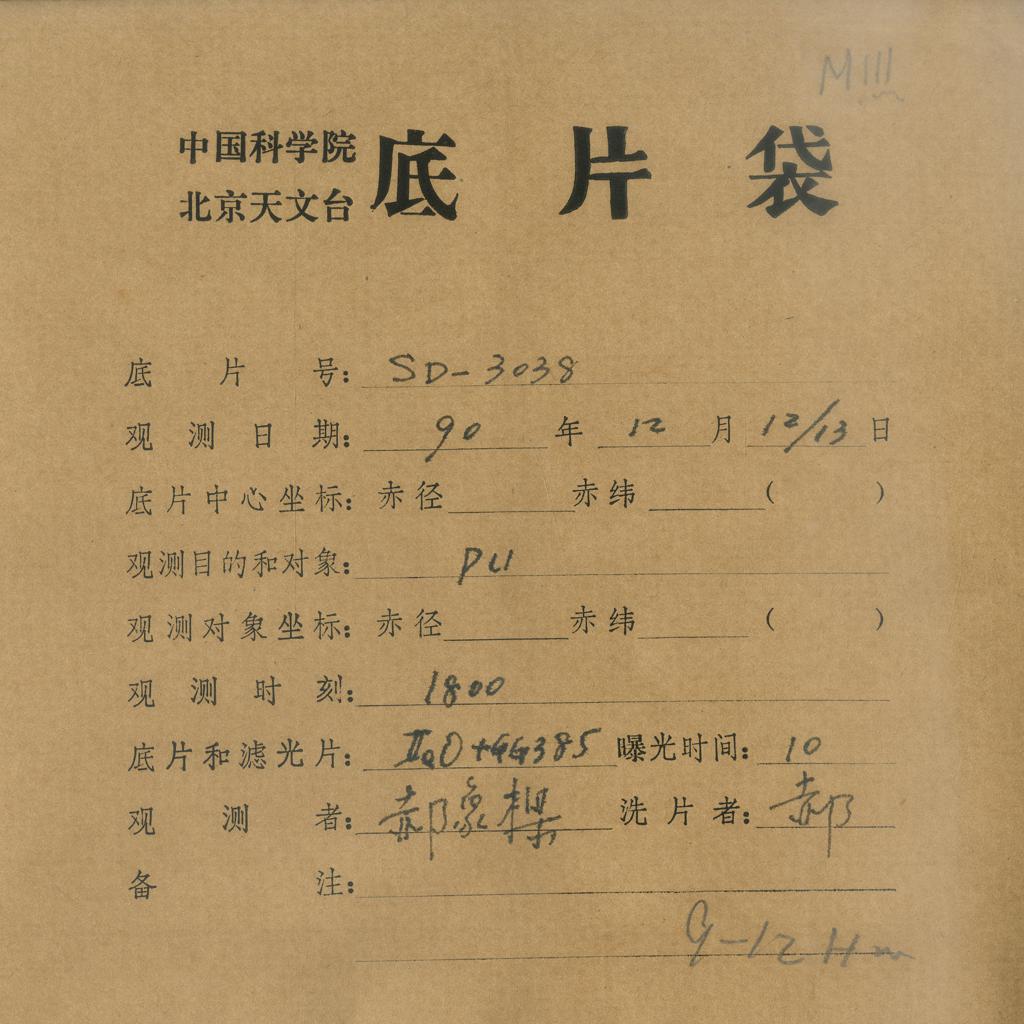 M111
中国科学院
北京天文台
底片袋
底片号: SD-3038
观测日期: 90年12月12/13日
底片中心坐标: 赤径 赤纬 ( )
观测目的和对象: PU
观测对象坐标: 赤径 赤纬 ( )
观测时刻: 1800
底片和滤光片: IIaO+GG385 曝光时间: 10
观测者: 郝象樑 洗片者: 郝
备注:
9-12